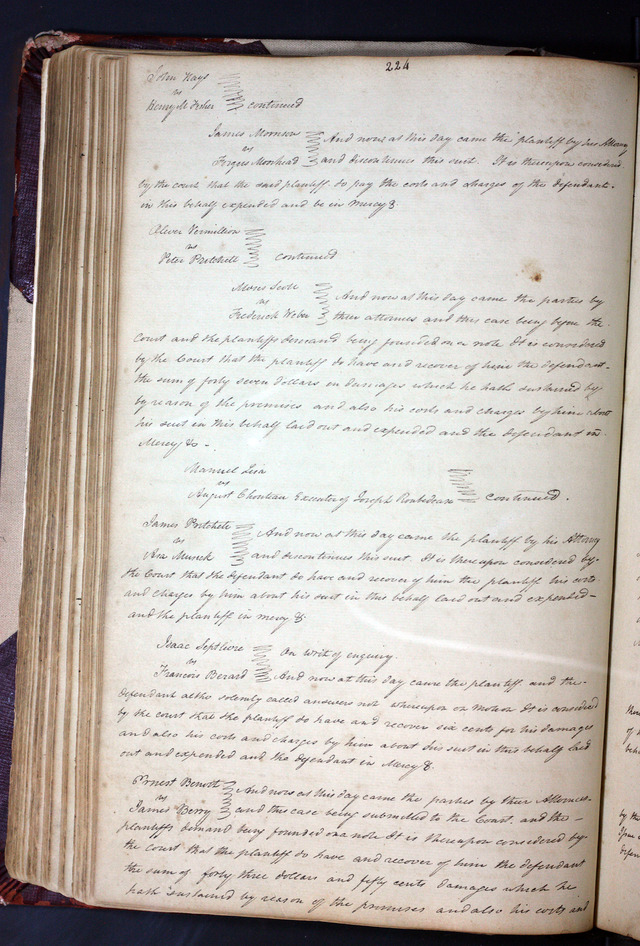 224
John Hays
vs
Henry M Fisher continued
James Morrison
vs And now at this day came the plantiff by his Attorny
Fergus Moorhead and discontinues this suit. It is thereupon considered
by the court that the said plantiff do pay the costs and charges of the defendant
in this behalf expended and be in mercy &
Oliver Vermillion
vs
Peter Pritchell continued
Moses Scott
vs And now at this day came the parties by
Frederick Weber their attornies and this case being before the
Court and the plantiffs demand being founded on a note It is considered
by the Court that the plantiff do have and recover of him the defendant
the sum of forty seven dollars in damages which he hath sustained by
by reason of the premises and also his costs and charges by him about
his suit in this behalf laid out and expended and the defendant in
Mercy &c -
Manuel Lisa
vs
August Chouteau Executor of Joseph Roubedeaux continued.
James Pritchett
vs And now at this day came the plantiff by his Attorny
Asa Musick and discontinues this suit. It is thereupon considered by
the Court that the defendant do have and recover of him the plantiff his costs
and charges by him about his suit in this behalf laid out and expended
and the plantiff in mercy &
Isaac Septlivre
vs On writ of enquiry
Francois Berard And now at this day came the plantiff and the
defendant altho solemly called answers not whereupon on motion It is considered
by the court that the plantiff do have and recover six cents for his damages
and also his costs and charges by him about his suit in this behalf laid
out and expended and the defendant in Mercy &
Ernest Benoit And now at this day came the parties by their Attornies
vs
James Berry and this case being submitted to the Court, and the
plantiffs demand being founded on a note It is thereupon considered by
the court that the plantiff do have and recover of him the defendant
the sum of forty three dollars and fifty cents damages which he
hath sustained by reason of the premises and also his costs and